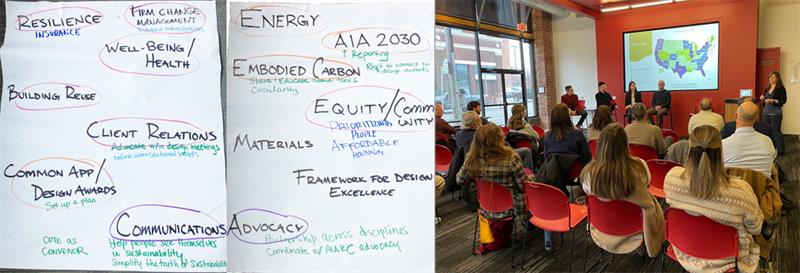 RESILIENCE
INSURANCE
FIRM CHANGE
MANAGEMENT
WELL-BEING/
HEALTH
BUILDING REUSE
CLIENT RELATIONS
Advocate w/in design meetings
define intersectional beliefs
COMMON APP/
DESIGN AWARDS
Set up a plan
COMMUNICATIONS
COTE AS
CONVENOR
Help people see themselves
in sustainability
Simplify the truth of sustainability
ENERGY
AIA 2030
Reporting
EMBODIED CARBON
Share & Educate about tools
Circularity
EQUITY/COMM
UNITY
PRIORITIZING
PEOPLE
AFFORDABLE
HOUSING
MATERIALS
FRAMEWORK FOR DESIGN
EXCELLENCE
ADVOCACY
Partnership across disciplines
Coordinate w/ AIAKC advocacy